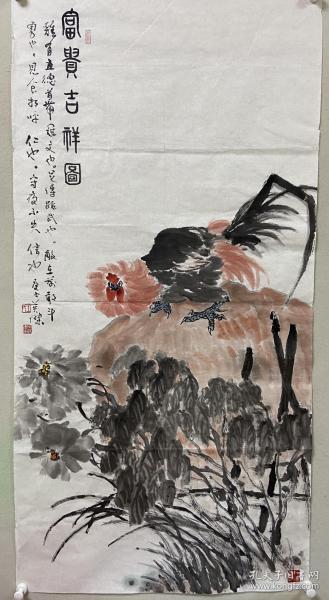 富貴吉祥圖
雞有五德首带冠文也足傅距武也敵在前敢斗
勇也見食相呼 仁也守夜不失 信也
孔夫子旧书网